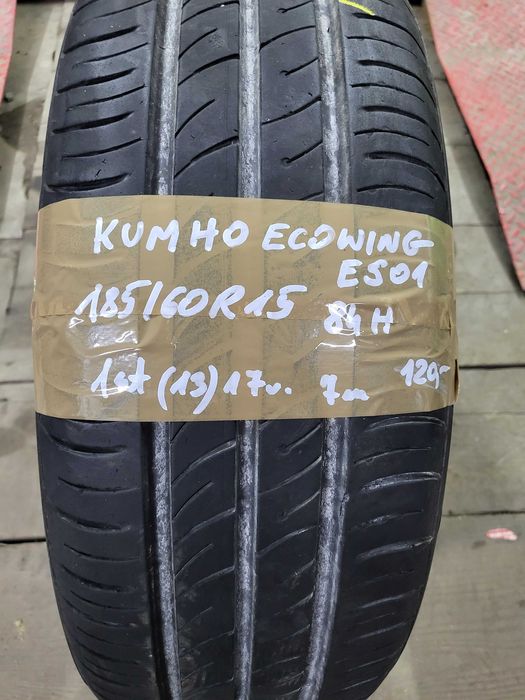 KUMHO ECOWING
ES01
185/60R15 84H
1szt (13) 17r. 7mm 129,-